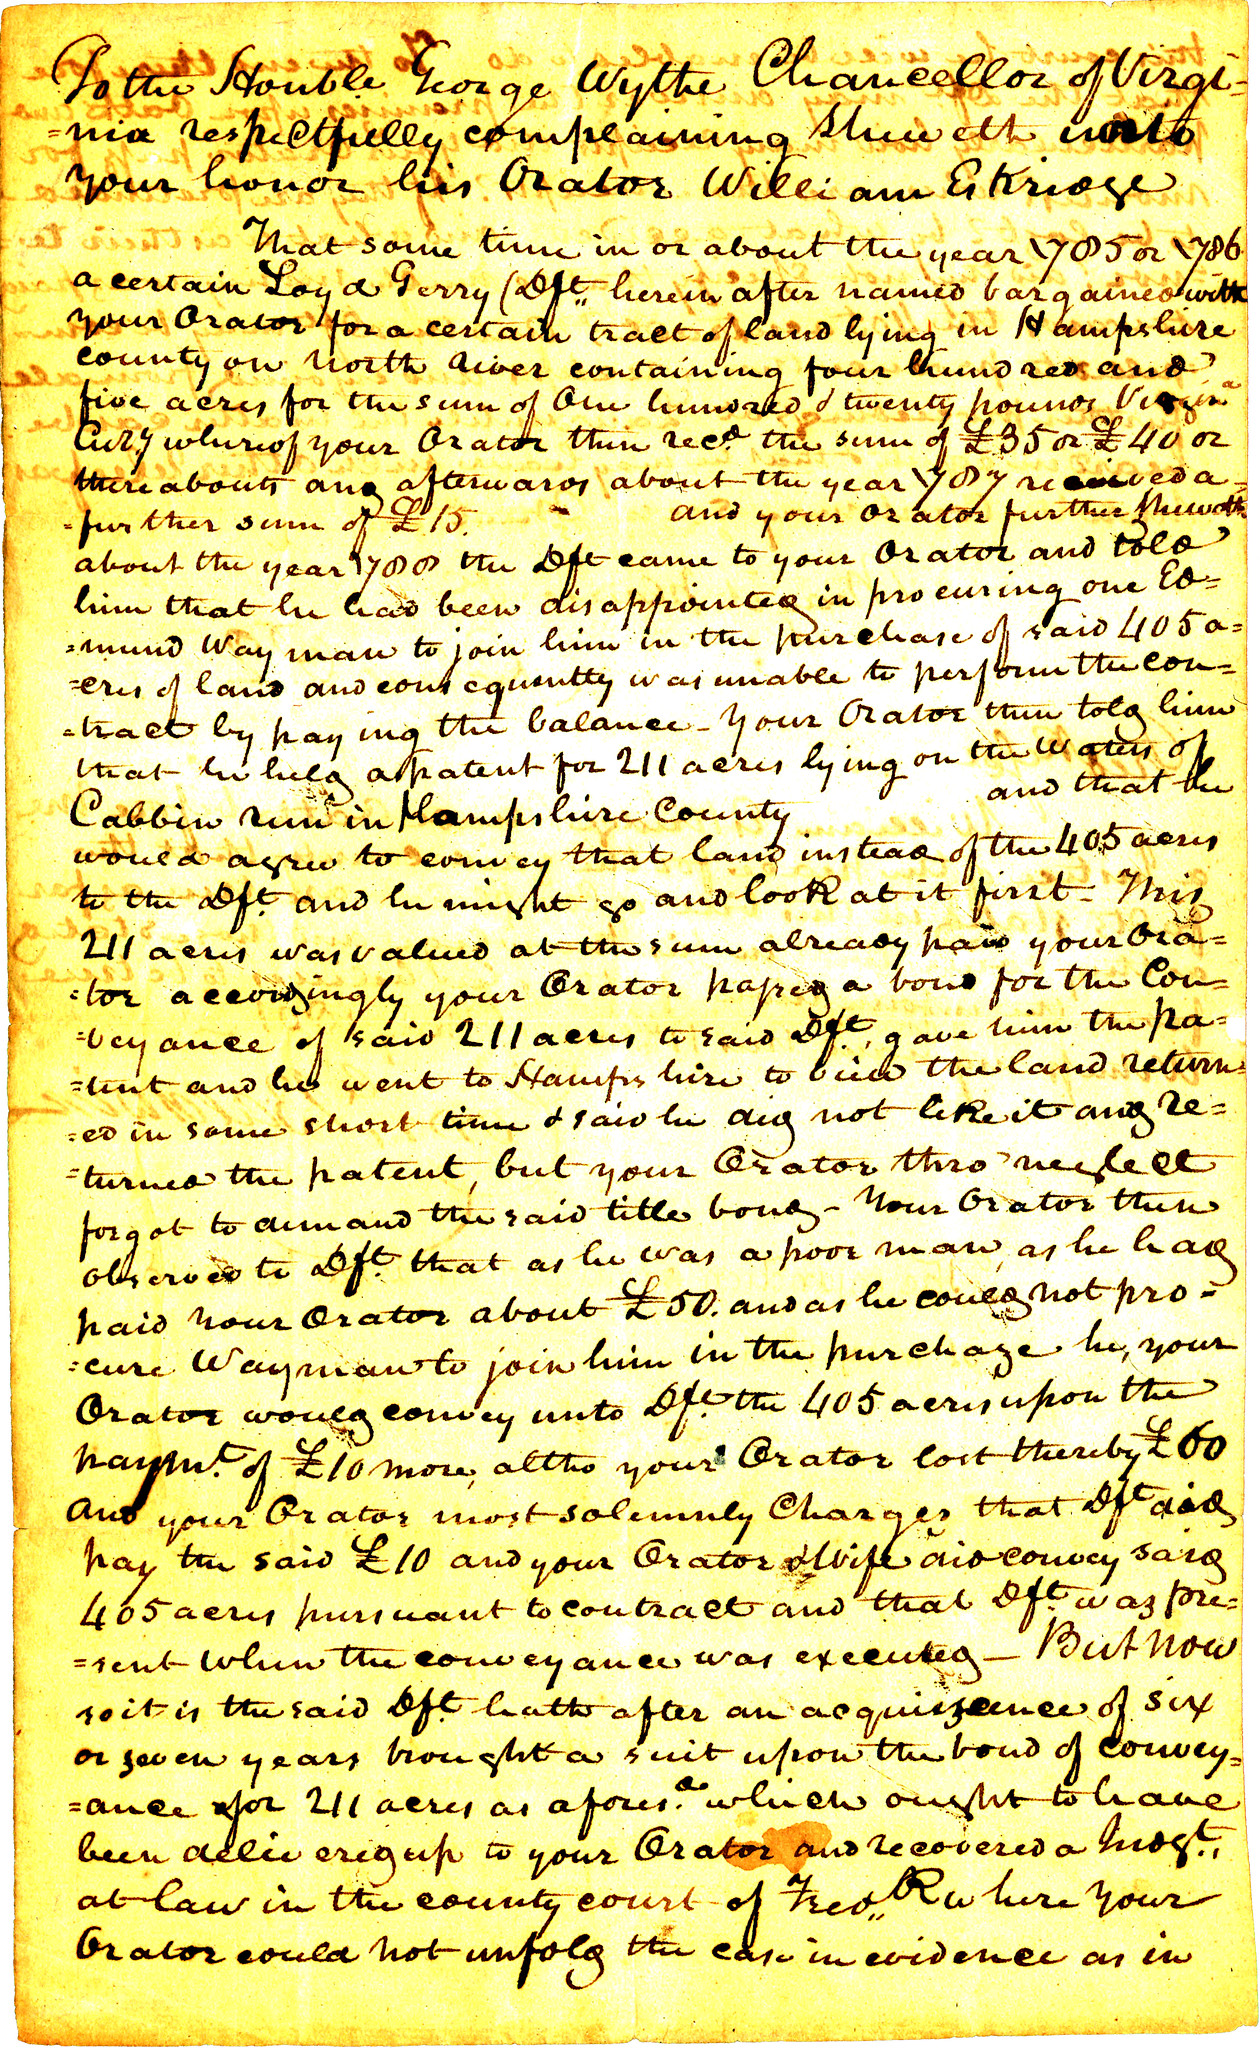 To the Honble George Wythe Chancellor of Virgi-
=nia respectfully complaining Sheweth unto
your honor his Orator William Eskridge
That some time in or about the year 1785 or 1786
a certain Loyd Gerry (Dft,, herein after named bargained with
your Orator for a certain tract of land lying in Hampshire
county on North River containing four hundred and
five acres for the sum of One hundred & twenty pounds Virgina
Cur.y whereof your Orator then recd. the sum of £35 or £40 or
thereabouts and afterwards about the year 1787 received a
=further sum of £15. and your Orator further Sheweth
about the year 1788 the Dft came to your Orator and told
him that he had been disappointed in procuring one Ed=
=mund Wayman to join him in the purchase of said 405 a=
=cres of land and consequently was unable to perform the con-
=tract by paying the balance - Your Orator then told him
that he held a patent for 211 acres lying on the Waters of
Cabbin run in Hampshire County and that he
would agree to convey that land instead of the 405 acres
to the Dft. and he might go and look at it first - This
211 acres was valued at the sum already paid your Ora=
=tor accordingly your Orator passed a bond for the Con-
=veyance of said 211 acres to said Dft., gave him the pa-
=tent and he went to Hampshire to view the land return=
=ed in some short time & said he did not like it and re=
=turned the patent, but your Orator thro' neglect
forgot to demand the said title bond - Your Orator then
observed to Dft. that as he was a poor man, as he had
paid your Orator about £50. and as he could not pro-
=cure Wayman to join him in the purchase he, your
Orator would convey unto Dft. the 405 acres upon the
paymt. of £10 more, altho your Orator lost thereby £60
And your Orator most solemnly Charges that Dft did
pay the said £10 and your Orator & Wife did convey said
405 acres pursuant to contract and that Dft. was pre-
=sent when the conveyance was executed - But now
so it is the said Dft. hath after an acquiscence of six
or seven years brought a suit upon the bond of convey=
=ance for 211 acres as aforesd. which ought to have
been delivered up to your Orator and recovered a Judgt.,
at law in the county court of Fred,,k where your
Orator could not unfold the case in evidence as in